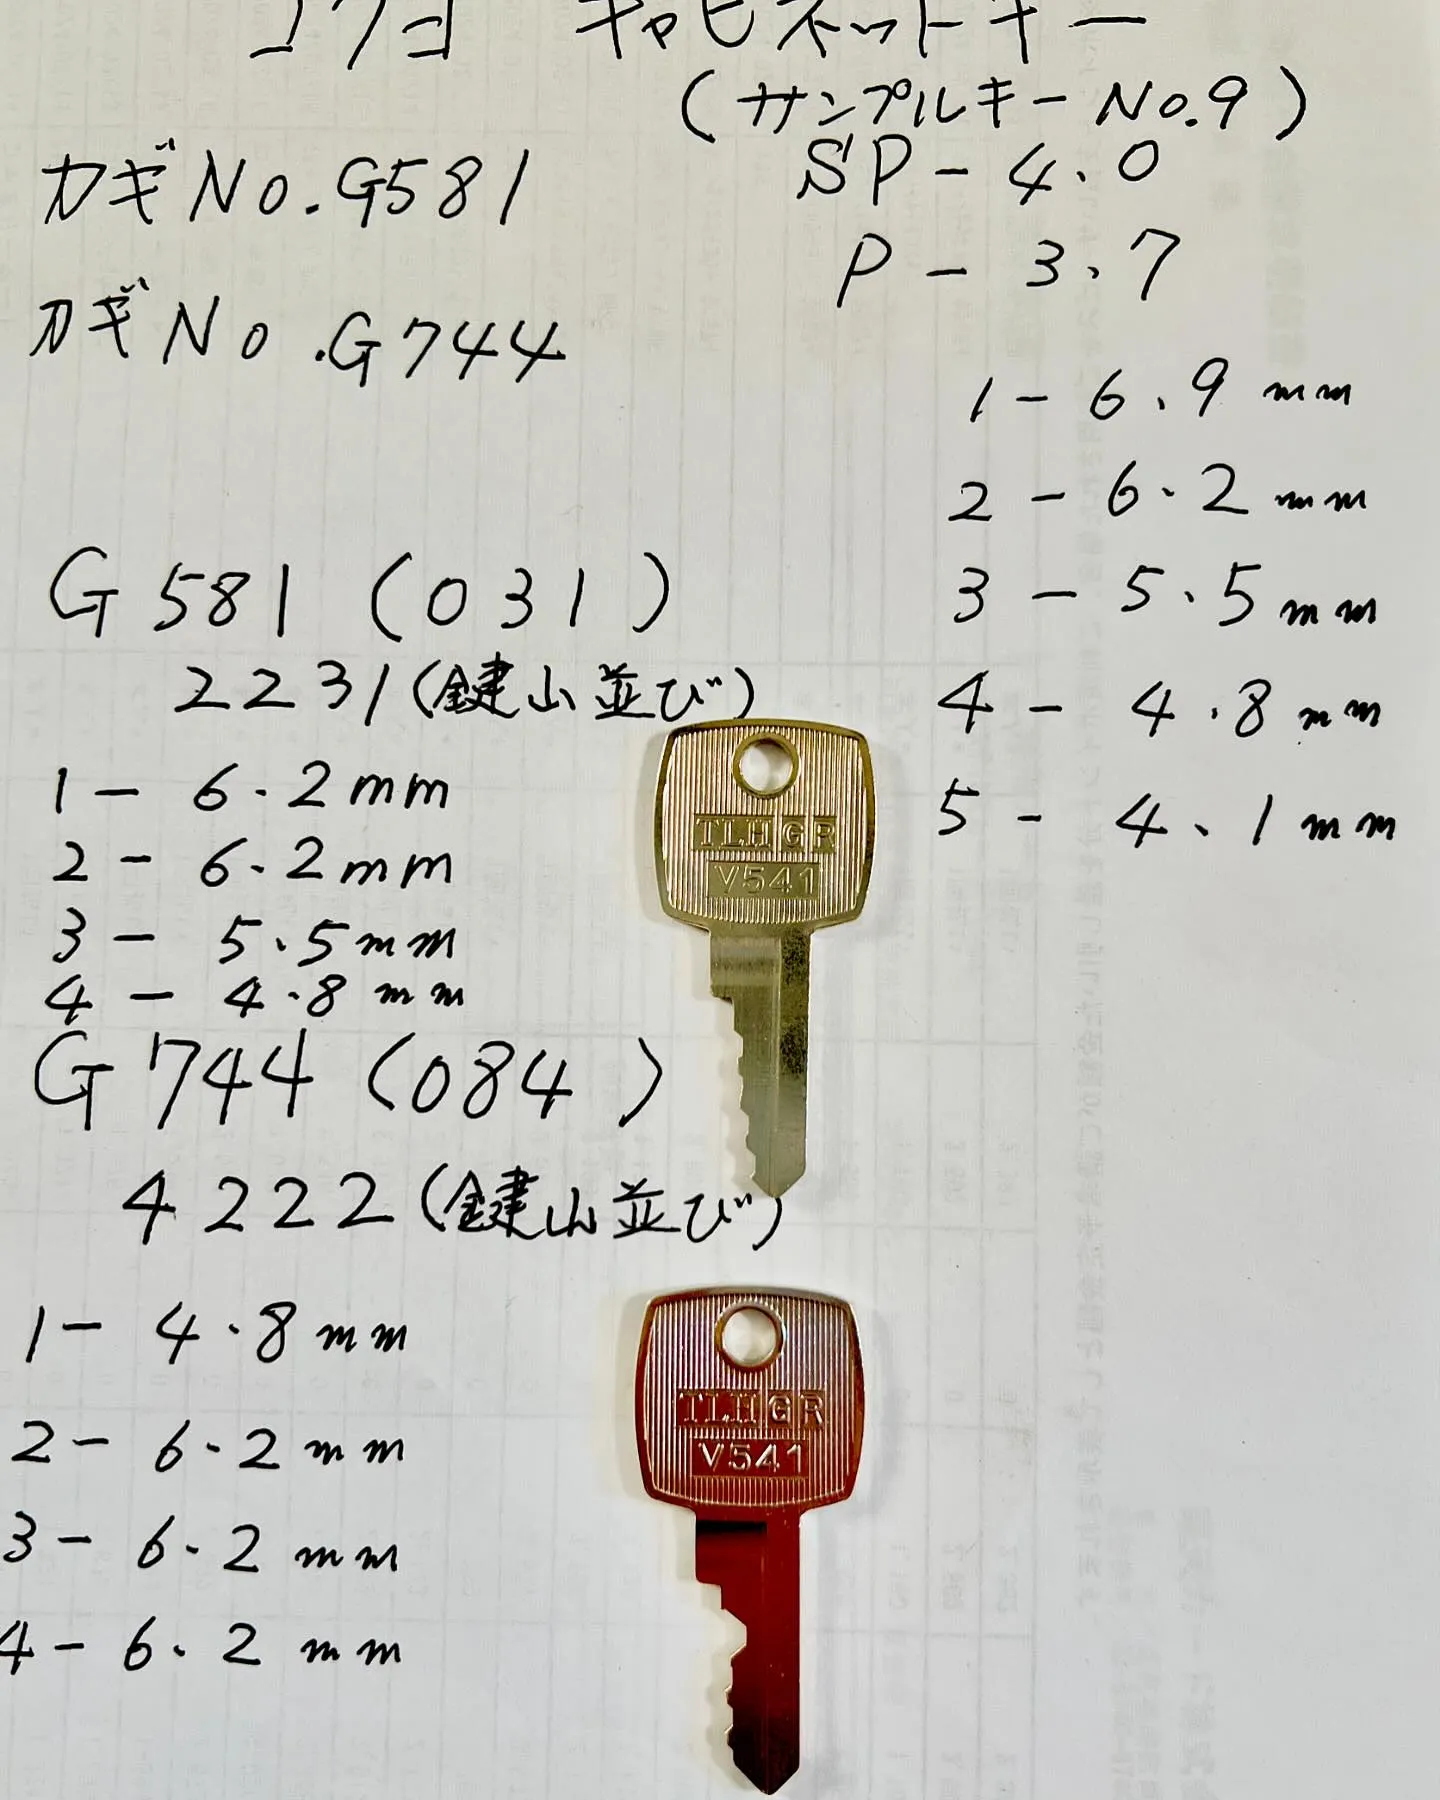 コクヨ キャビネットキー
(サンプルキーNo.9)
カギNo.G581
SP-4.0
P-3.7
カギNo.G744
1-6.9mm
2-6.2mm
3-5.5mm
4-4.8mm
5-4.1mm
G581(031)
2231(鍵山並び)
1-6.2mm
2-6.2mm
3-5.5mm
4-4.8mm
TLHGR
V541
G744(084)
4222(鍵山並び)
1-4.8mm
2-6.2mm
3-6.2mm
4-6.2mm
TLHGR
V541